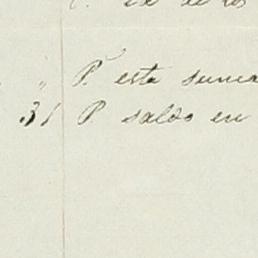 " P.r esta suma
31 P saldo en